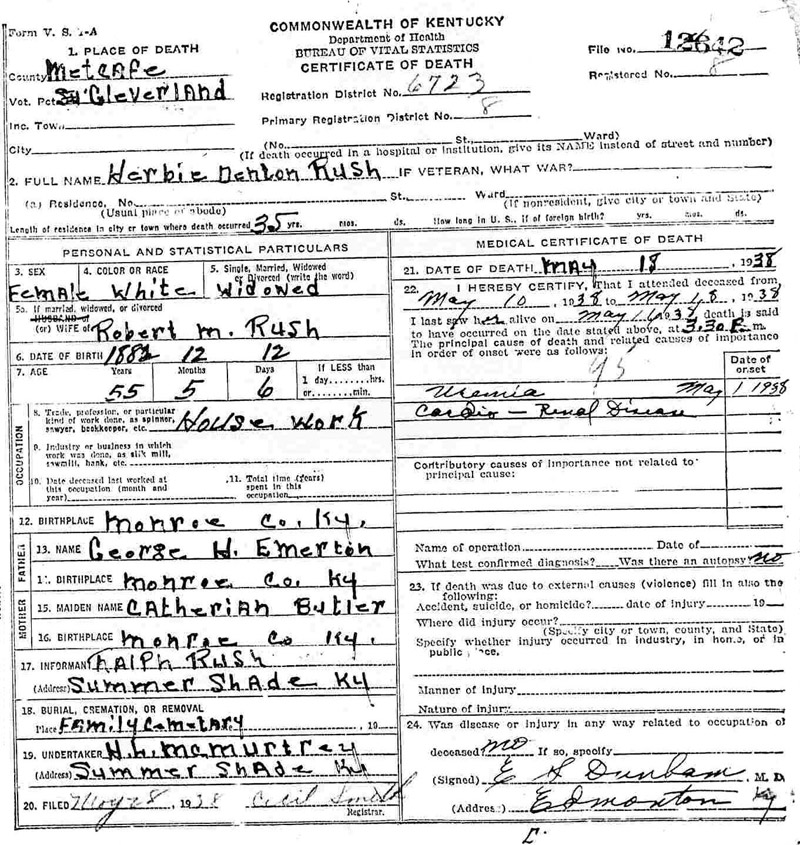 Form V. S. 1-A
COMMONWEALTH OF KENTUCKY
Department of Health
BUREAU OF VITAL STATISTICS
CERTIFICATE OF DEATH
File No.
Registered No. 8
1. PLACE OF DEATH
County Metcafe
Vot. Pct. Cleverland
Inc. Town
City
Registration District No. 6723
Primary Registration District No. 8
(No. St., Ward)
(If death occurred in a hospital or institution, give its NAME instead of street and number)
2. FULL NAME Herbie Denton Rush IF VETERAN, WHAT WAR?
(a) Residence, No. St., Ward
(Usual place of abode) (If nonresident, give city or town and State)
Length of residence in city or town where death occurred 35 yrs. mos. ds. How long in U. S., if of foreign birth? yrs. mos. ds.
PERSONAL AND STATISTICAL PARTICULARS
3. SEX 4. COLOR OR RACE 5. Single, Married, Widowed
or Divorced (write the word)
Female White Widowed
5a. If married, widowed, or divorced
HUSBAND of
(or) WIFE of Robert M. Rush
6. DATE OF BIRTH 1882 12 12
7. AGE Years Months Days If LESS than
1 day........hrs.
55 5 6 or........min.
OCCUPATION
8. Trade, profession, or particular
kind of work done, as spinner,
sawyer, bookkeeper, etc. House work
9. Industry or business in which
work was done, as silk mill,
sawmill, bank, etc.
10. Date deceased last worked at
this occupation (month and
year)
11. Total time (years)
spent in this
occupation
12. BIRTHPLACE Monroe Co. Ky.
FATHER
13. NAME George H. Emerton
14. BIRTHPLACE Monroe Co. Ky
MOTHER
15. MAIDEN NAME Catherian Butler
16. BIRTHPLACE Monroe Co Ky.
17. INFORMANT Ralph Rush
(Address) Summer Shade Ky
18. BURIAL, CREMATION, OR REMOVAL
Place Family Cemetary , 19
19. UNDERTAKER H.H. McMurtrey
(Address) Summer Shade Ky
20. FILED May 28, 1938 Cecil Smith
Registrar.
MEDICAL CERTIFICATE OF DEATH
21. DATE OF DEATH May 18, 1938
22. I HEREBY CERTIFY, That I attended deceased from
May 10, 1938 to May 18, 1938
I last saw her alive on May 16 1938 death is said
to have occurred on the date stated above, at 3.30 P. m.
The principal cause of death and related causes of importance
in order of onset were as follows:
Date of
onset
Uremia May 1 1938
Cardio - Renal Disease
Contributory causes of importance not related to
principal cause:
Name of operation Date of
What test confirmed diagnosis? Was there an autopsy? no
23. If death was due to external causes (violence) fill in also the
following:
Accident, suicide, or homicide? date of injury 19
Where did injury occur?
(Specify city or town, county, and State)
Specify whether injury occurred in industry, in home, or in
public place.
Manner of injury
Nature of injury
24. Was disease or injury in any way related to occupation of
deceased? no If so, specify
(Signed) E S Dunham, M. D.
(Address) Edmonton Ky